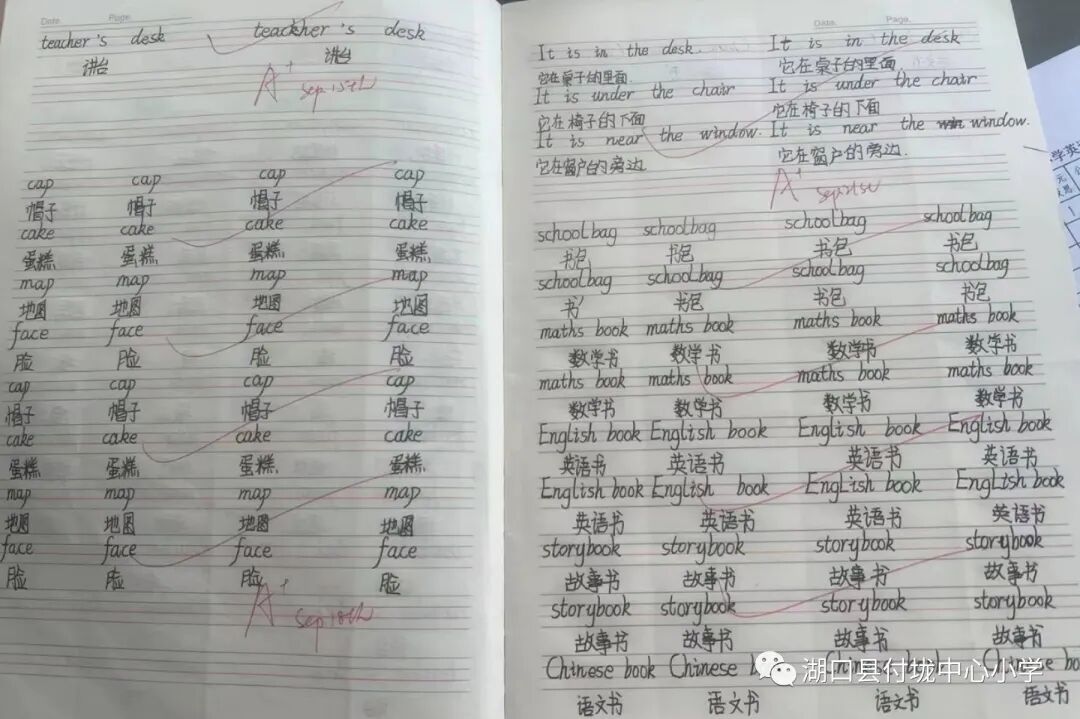 Date. Page.
teacher's desk teackher's desk
讲台 讲台
A+ Sep 15th
cap cap cap cap
帽子 帽子 帽子 帽子
cake cake cake cake
蛋糕 蛋糕 蛋糕 蛋糕
map map map map
地图 地图 地图 地图
face face face face
脸 脸 脸 脸
cap cap cap cap
帽子 帽子 帽子 帽子
cake cake cake cake
蛋糕 蛋糕 蛋糕 蛋糕
map map map map
地图 地图 地图 地图
face face face face
脸 脸 脸 脸
A+ Sep 18th
Date. Page.
It is in the desk. It is in the desk
它在桌子的里面. 它在桌子的里面.
It is under the chair It is under the chair
它在椅子的下面 它在椅子的下面
It is near the window. It is near the window.
它在窗户的旁边. 它在窗户的旁边.
A+ Sep 21st
schoolbag schoolbag schoolbag schoolbag
书包 书包 书包 书包
schoolbag schoolbag schoolbag schoolbag
书 书包 书包 书包
maths book maths book maths book maths book
数学书 数学书 数学书 数学书
maths book maths book maths book maths book
数学书 数学书 数学书 数学书
English book English book English book English book
英语书 英语书 英语书 英语书
English book English book English book English book
英语书 英语书 英语书 英语书
storybook storybook storybook storybook
故事书 故事书 故事书 故事书
storybook storybook storybook storybook
故事书 故事书 故事书 故事书
Chinese book Chinese Chinese Chinese
语文书 语文书 语文书 语文书
湖口县付垅中心小学
学英
元